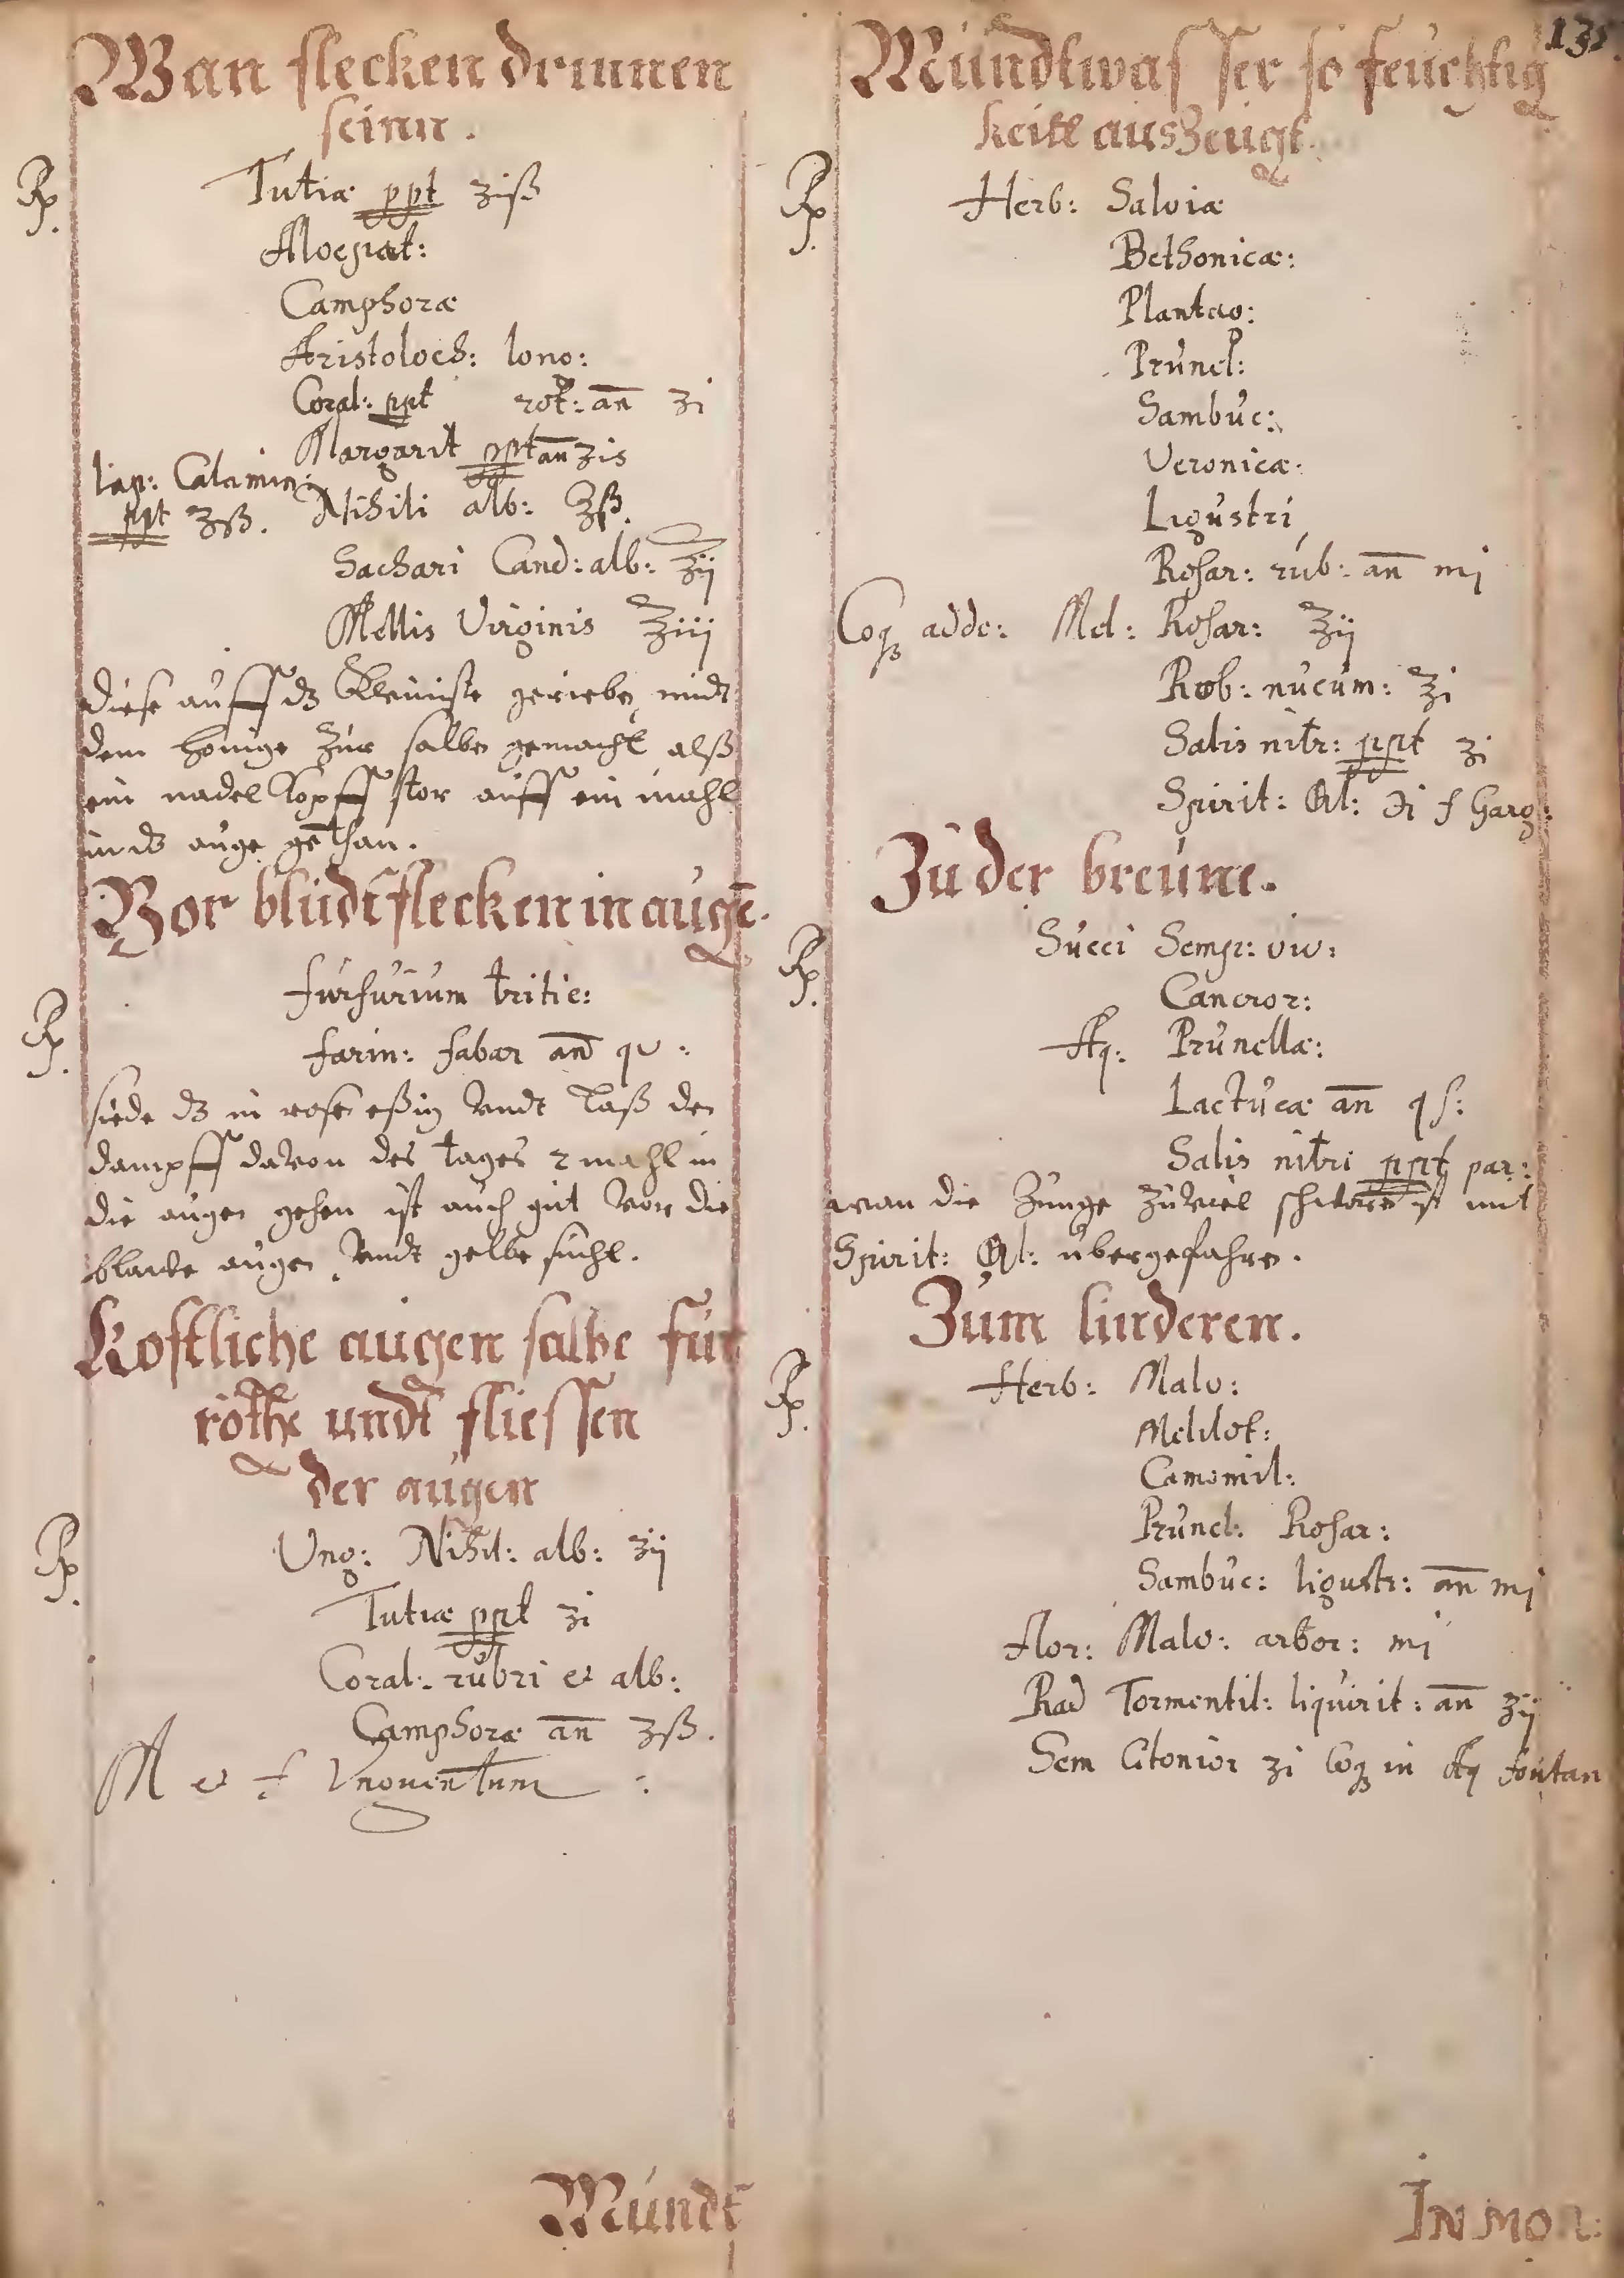 Wan flecken drinnen
seinn.
Rp. Tutiæ ppt ʒiß
Aloepat:
Camphoræ
Aristoloch: long:
Coral: ppt rot: an ʒi
Margarit ppt an ʒis
lap: Calamin:
ppt ʒß. Nihili alb: ʒß.
Sachari Cand: alb: ʒij
Mellis Virginis ℥iij
diese auff dz kleiniste gerieben midt
dem honige zur salben gemacht alß
ein nadel kopff in auff ein mahl
in dz auge gethan.
Vor blüdtflecken in augē.
Rp. furfurum tritic:
farin: fabar an qv:
siede dz in rosen eßig vndt laß den
dampff davon des tages 2 mahl in
die augen gehen ist auch gut vor die
blawe augen vndt gelbe sucht.
Kostliche augen salbe für
röthe undt fliessen
der augen
Rp. Ung: Nihil: alb: ʒij
Tutiæ ppt ʒi
Coral: rubri et alb:
Camphoræ an ʒß.
M et f Vnguentum :
Mundt
135
Mundtwasser so feuchtig
keitt ausZeugt.
Rp. Herb: Salviæ
Bethonicæ:
Plantag:
Prunel:
Sambuc:
Veronicæ:
Ligustri,
Rosar: rub: an mj
Coqȝ adde: Mel: Rosar: ℥ij
Rob: nucum: ℥i
Salis nitr: ppt ʒi
Spirit: Vit: ℈i f Garg:
Zu der breune.
Rp. Succi Semp: viv:
Cancror:
Aq: Prunellæ:
Lactucæ an qs:
Salis nitri ppt par:
wan die Zunge zuviel schwartz ist mit
Spirit: Vit: übergefahren.
Zum linderen.
Rp. Herb: Malv:
Melilot:
Camomil:
Prunel: Rosar:
Sambuc: ligustr: an mj
flor: Malv: arbor: mj
Rad Tormentil: liquirit: an ʒij
Sem Citonior ʒi Coqȝ in Aq fontan
IN MOR: